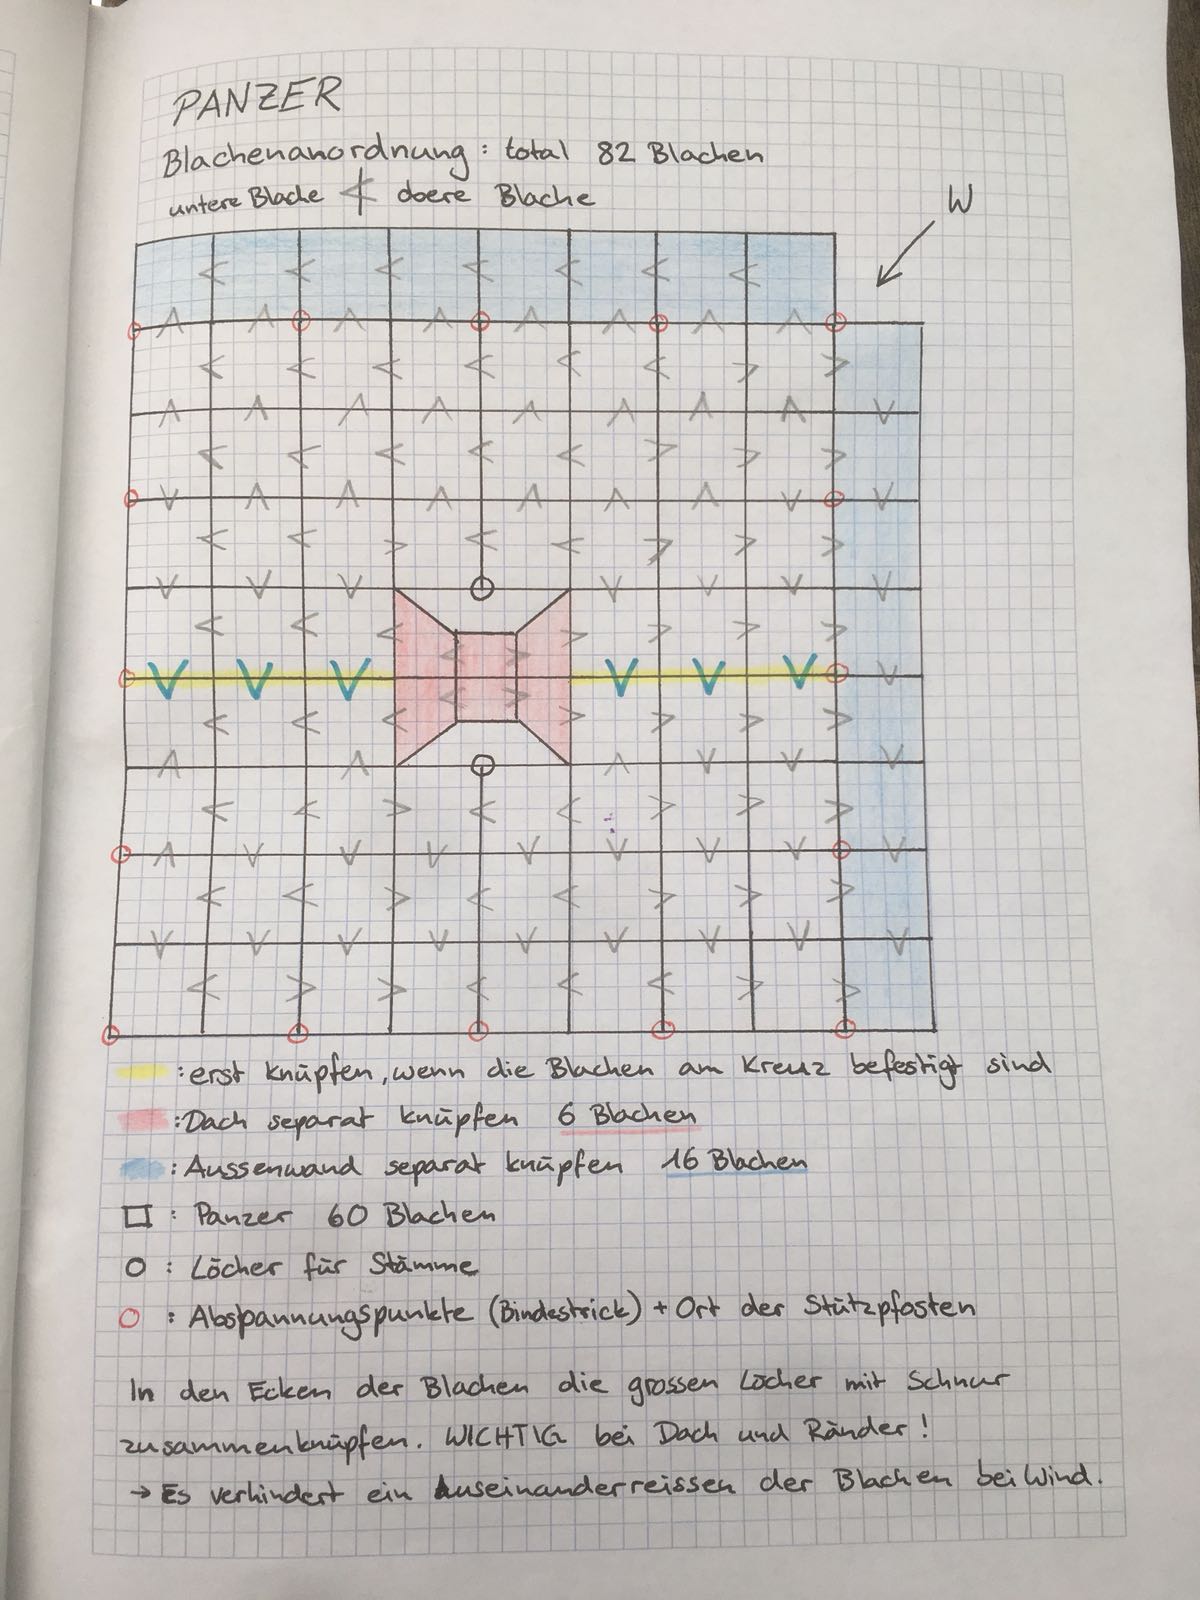 PANZER
Blachenanordnung : total 82 Blachen
untere Blache < obere Blache
W
: erst knüpfen, wenn die Blachen am Kreuz befestigt sind
: Dach separat knüpfen 6 Blachen
: Aussenwand separat knüpfen 16 Blachen
: Panzer 60 Blachen
: Löcher für Stämme
: Abspannungspunkte (Bindestrick) + Ort der Stützpfosten
In den Ecken der Blachen die grossen Löcher mit Schnur
zusammenknüpfen. WICHTIG bei Dach und Ränder!
→ Es verhindert ein Auseinanderreissen der Blachen bei Wind.